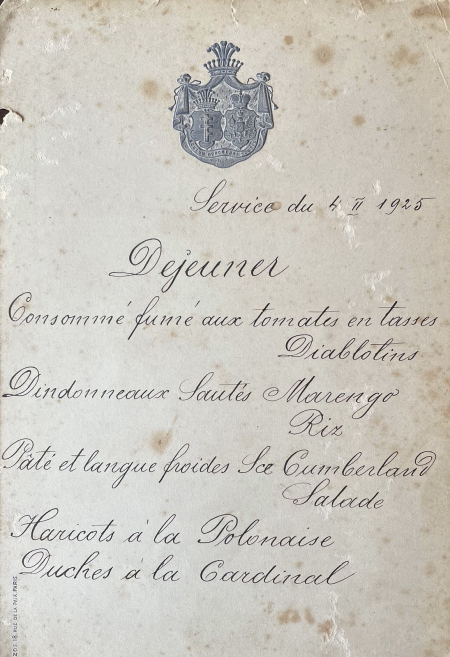 Service du 4 II 1925
Dejeuner
Consommé fumé aux tomates en tasses
Diablotins
Dindonneaux Sautés Marengo
Riz
Pâté et langue froides Sce Cumberland
Salade
Haricots à la Polonaise
Duches à la Cardinal
18, RUE DE LA PAIX, PARIS